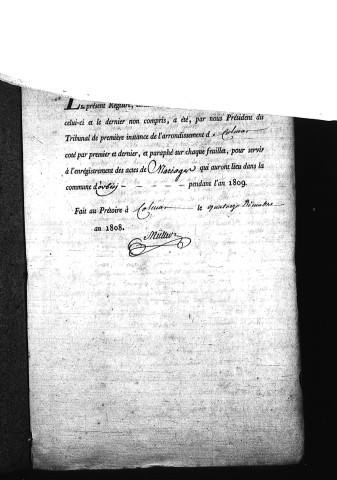 Le présent Registre,
celui-ci et le dernier non compris, a été, par nous Président du
Tribunal de première instance de l'arrondissement d e Colmar
coté par premier et dernier, et paraphé sur chaque feuillet, pour servir
à l'enregistrement des actes de Mariages qui auront lieu dans la
commune d'orbey - - - - pendant l'an 1809.
Fait au Prétoire à Colmar le quatorze Décembre
an 1808.